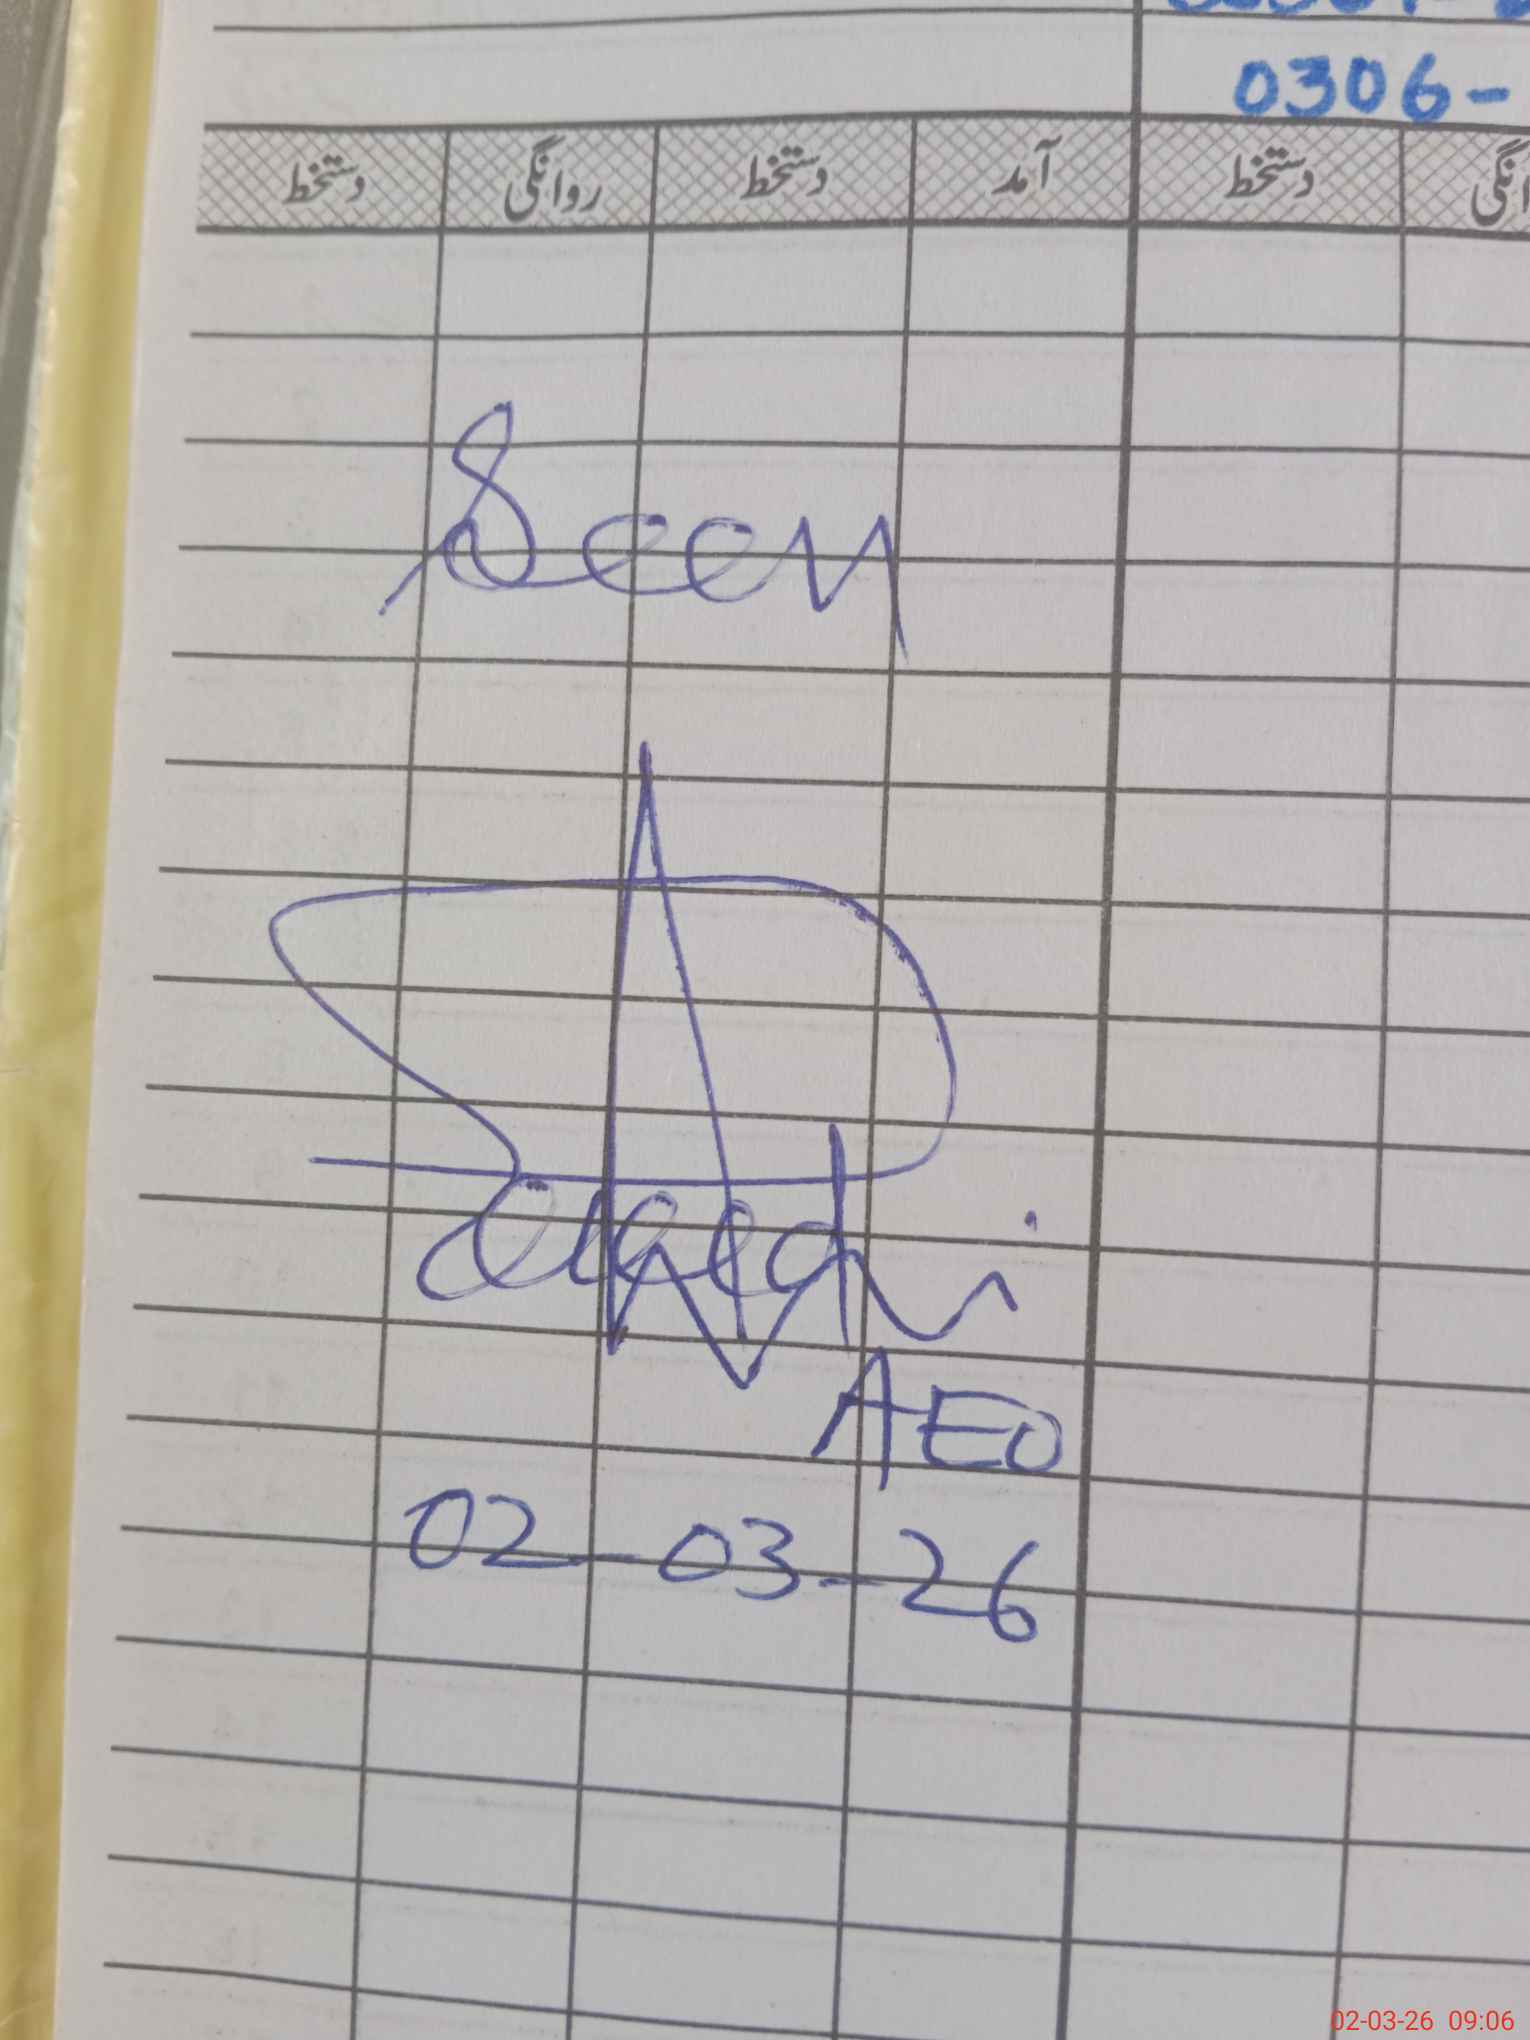 0306-
دستخط روانگی دستخط آمد دستخط
Seen
AEO
02-03-26
02-03-26 09:06